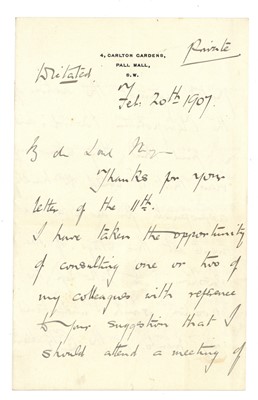 Private
4, CARLTON GARDENS,
PALL MALL,
S.W.
Dictated.
Feb. 20th 1907.
My dear Lord
Thanks for your
letter of the 11th.
I have taken the opportunity
of consulting one or two of
my colleagues with reference
to your suggestion that I
should attend a meeting of